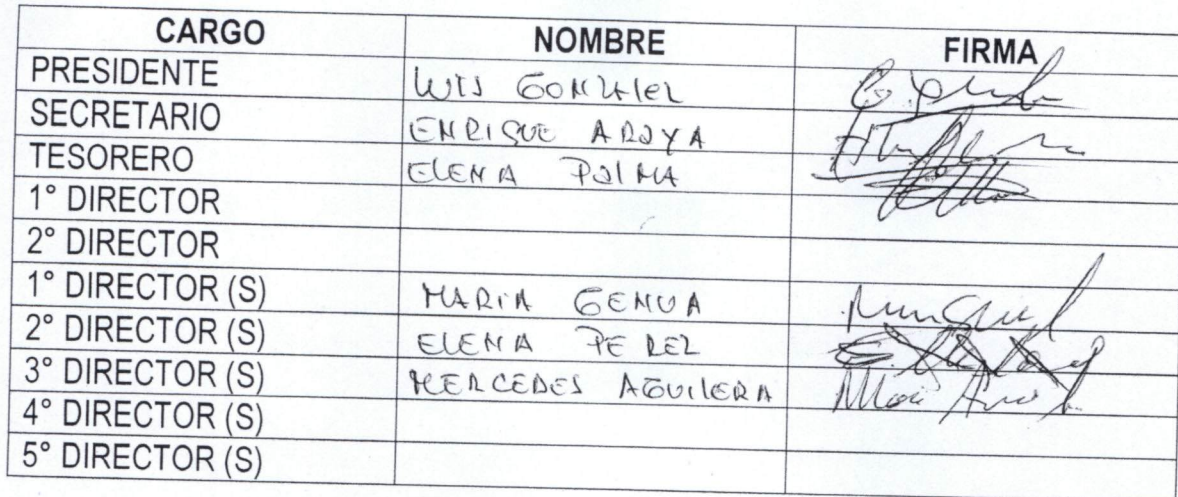 CARGO NOMBRE FIRMA
PRESIDENTE LUIS GONZALEZ
SECRETARIO ENRIQUE ARAYA
TESORERO ELENA PALMA
1° DIRECTOR
2° DIRECTOR
1° DIRECTOR (S) MARIA GENUA
2° DIRECTOR (S) ELENA PEREZ
3° DIRECTOR (S) MERCEDES AGUILERA
4° DIRECTOR (S)
5° DIRECTOR (S)